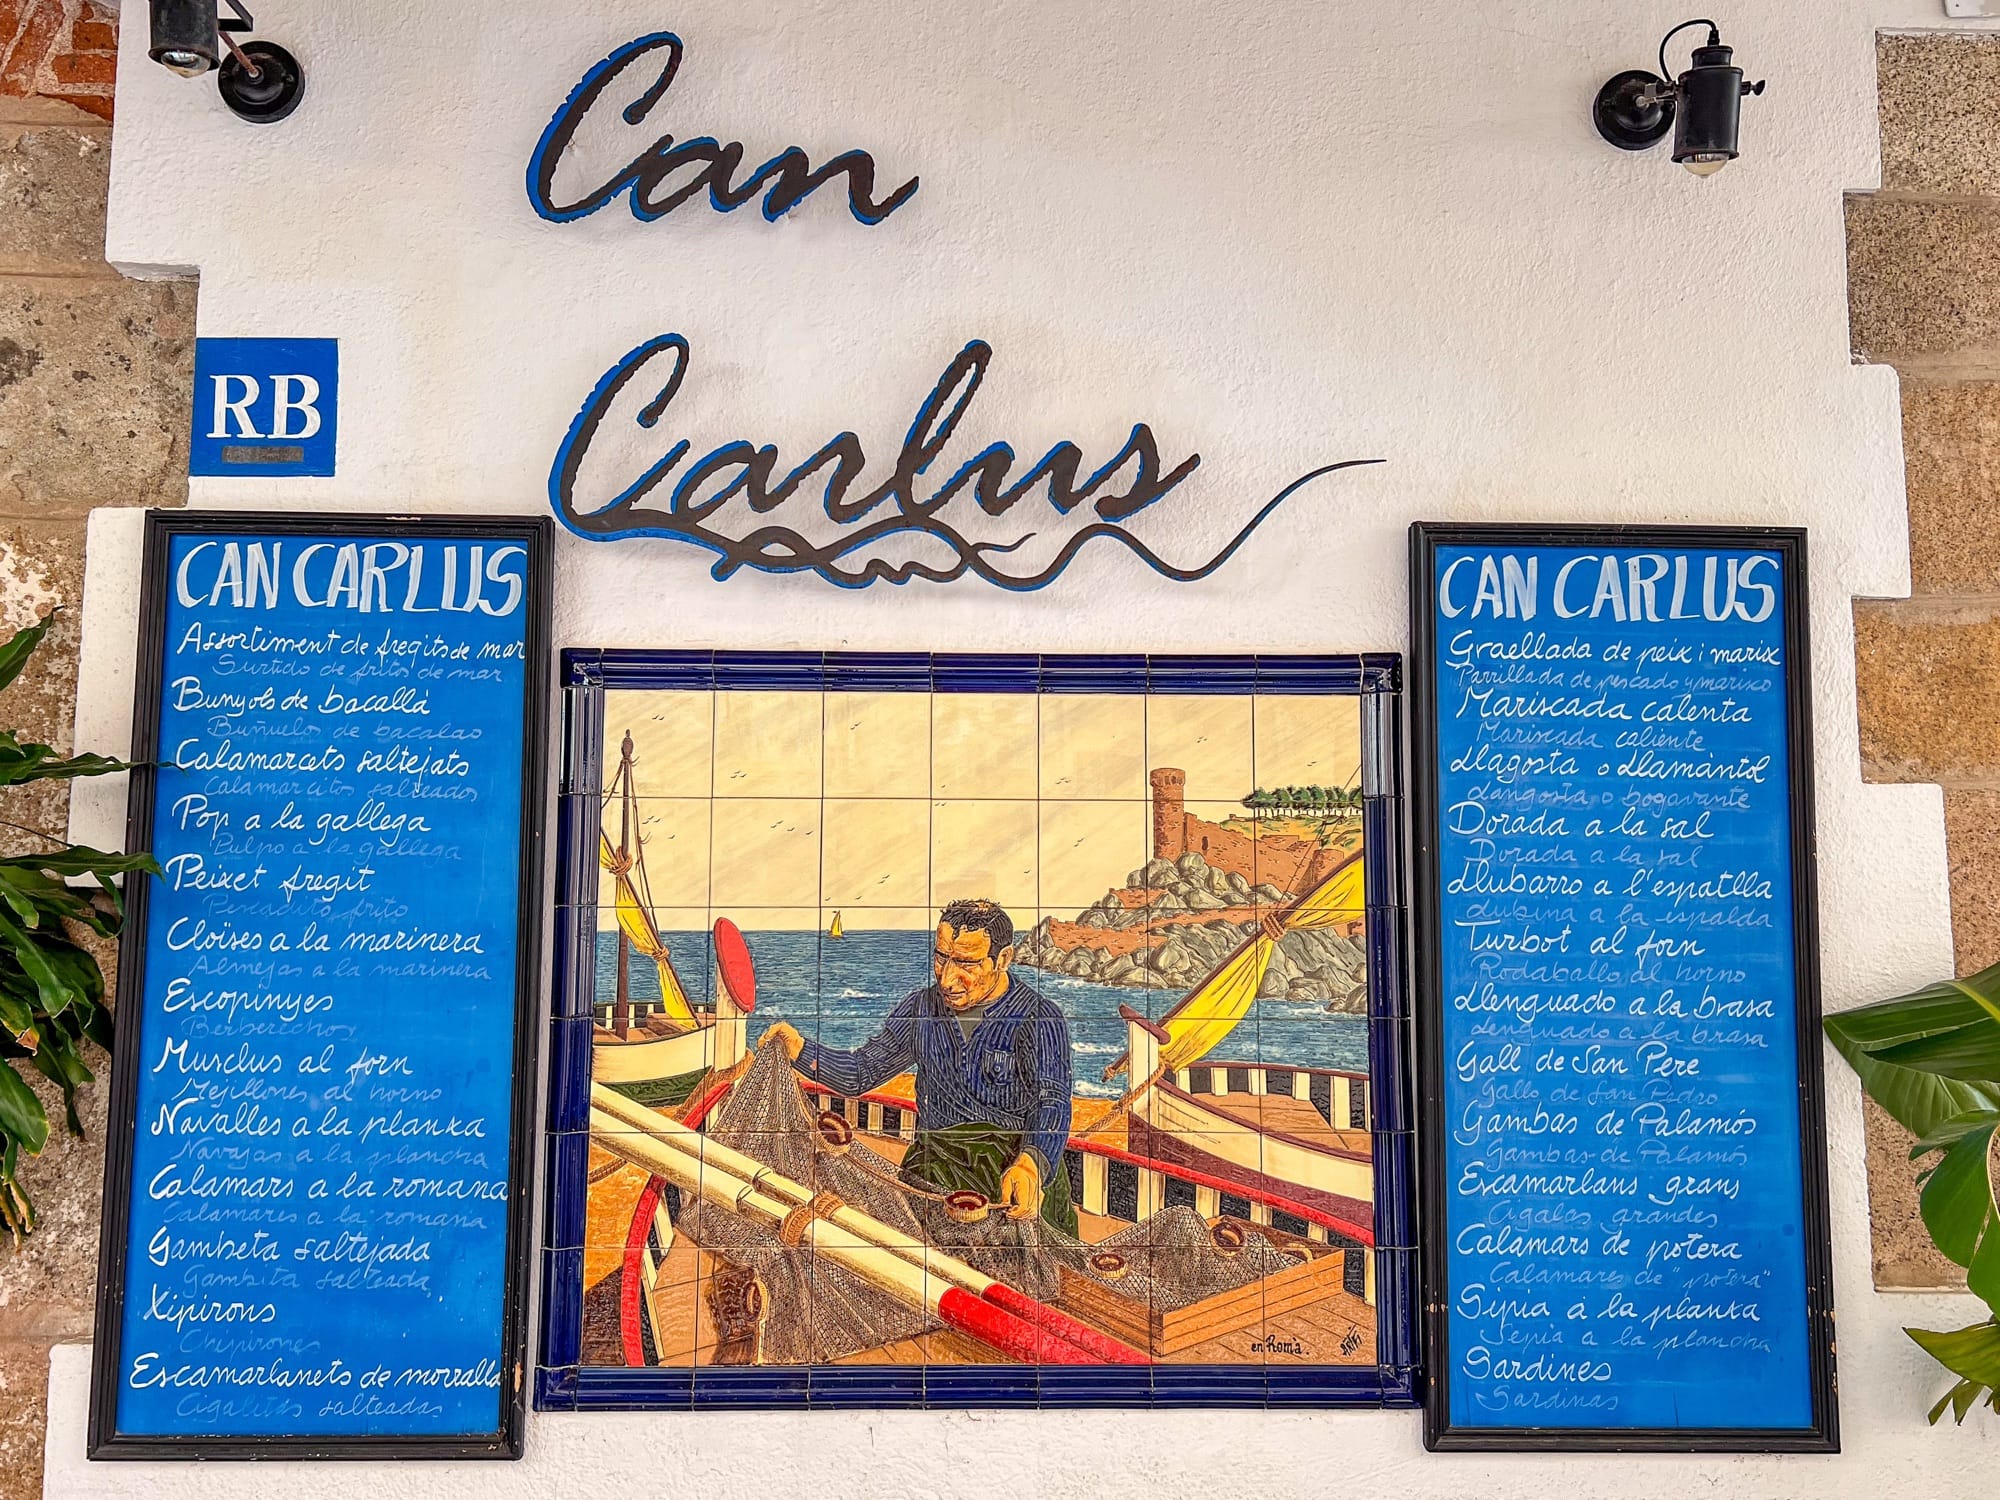 Can
Carlus
RB
CAN CARLUS
Assortiment de fregits de mar
Surtido de fritos de mar
Bunyols de bacallà
Buñuelos de bacalao
Calamarcets saltejats
Calamarcitos salteados
Pop a la gallega
Pulpo a la gallega
Peixet fregit
Pescadito frito
Cloïses a la marinera
Almejas a la marinera
Escopinyes
Berberechos
Musclus al forn
Mejillones al horno
Navalles a la planxa
Navajas a la plancha
Calamars a la romana
Calamares a la romana
Gambeta saltejada
Gambita salteada
Xipirons
Chipirones
Escamarlanets de morralla
Cigalitas salteadas
en Romà.
CAN CARLUS
Graellada de peix i marix
Parrillada de pescado y marixo
Mariscada calenta
Mariscada caliente
Llagosta o Llamàntol
Langosta o bogavante
Dorada a la sal
Dorada a la sal
Llubarro a l'espatlla
Lubina a la espalda
Turbot al forn
Rodaballo al horno
Llenguado a la brasa
Lenguado a la brasa
Gall de San Pere
Gallo de San Pedro
Gambas de Palamós
Gambas de Palamós
Escamarlans grans
Cigalas grandes
Calamars de potera
Calamares de "potera"
Sipia a la planxa
Sepia a la plancha
Sardines
Sardinas